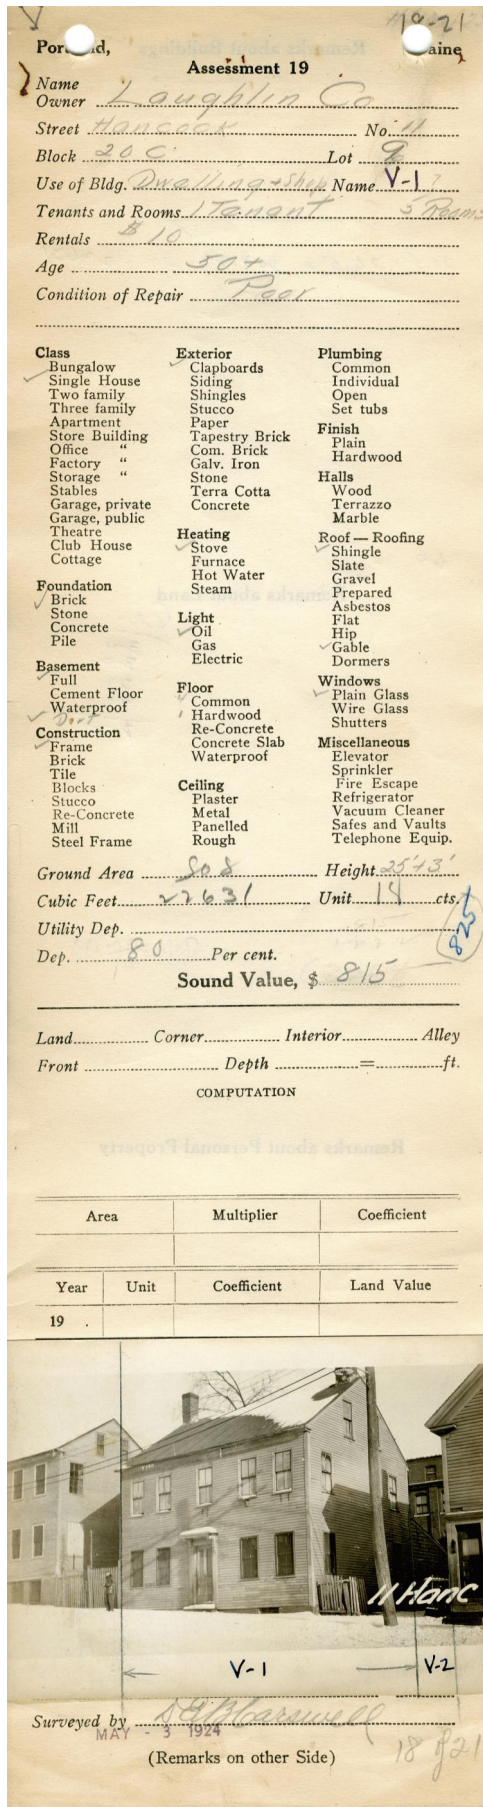 19-21
Portland, Maine
Assessment 19
Name
Owner Laughlin Co
Street Hancock No. 11
Block 20 C Lot 9
Use of Bldg. Dwelling + Shop Name V-1 ?
Tenants and Rooms 1 Tenant 5 Rooms
Rentals $10
Age 50+
Condition of Repair Poor
Class
✓ Bungalow
Single House
Two family
Three family
Apartment
Store Building
Office "
Factory "
Storage "
Stables
Garage, private
Garage, public
Theatre
Club House
Cottage
Foundation
✓ Brick
Stone
Concrete
Pile
Basement
✓ Full
Cement Floor
Waterproof
✓ Dirt
Construction
✓ Frame
Brick
Tile
Blocks
Stucco
Re-Concrete
Mill
Steel Frame
Exterior
✓ Clapboards
Siding
Shingles
Stucco
Paper
Tapestry Brick
Com. Brick
Galv. Iron
Stone
Terra Cotta
Concrete
Heating
✓ Stove
Furnace
Hot Water
Steam
Light
✓ Oil
Gas
Electric
Floor
Common
Hardwood
Re-Concrete
Concrete Slab
Waterproof
Ceiling
Plaster
Metal
Panelled
Rough
Plumbing
Common
Individual
Open
Set tubs
Finish
Plain
Hardwood
Halls
Wood
Terrazzo
Marble
Roof — Roofing
✓ Shingle
Slate
Gravel
Prepared
Asbestos
Flat
Hip
✓ Gable
Dormers
Windows
✓ Plain Glass
Wire Glass
Shutters
Miscellaneous
Elevator
Sprinkler
Fire Escape
Refrigerator
Vacuum Cleaner
Safes and Vaults
Telephone Equip.
Ground Area 808 Height 25'+3'
Cubic Feet 22631 Unit 18 cts.
Utility Dep.
825
Dep. 80 Per cent.
Sound Value, $ 815
Land Corner Interior Alley
Front Depth = ft.
COMPUTATION
Area Multiplier Coefficient
Year Unit Coefficient Land Value
19 .
11 Hanc
V-1 V-2
Surveyed by
MAY - 3 1924
(Remarks on other Side)
18 of 21